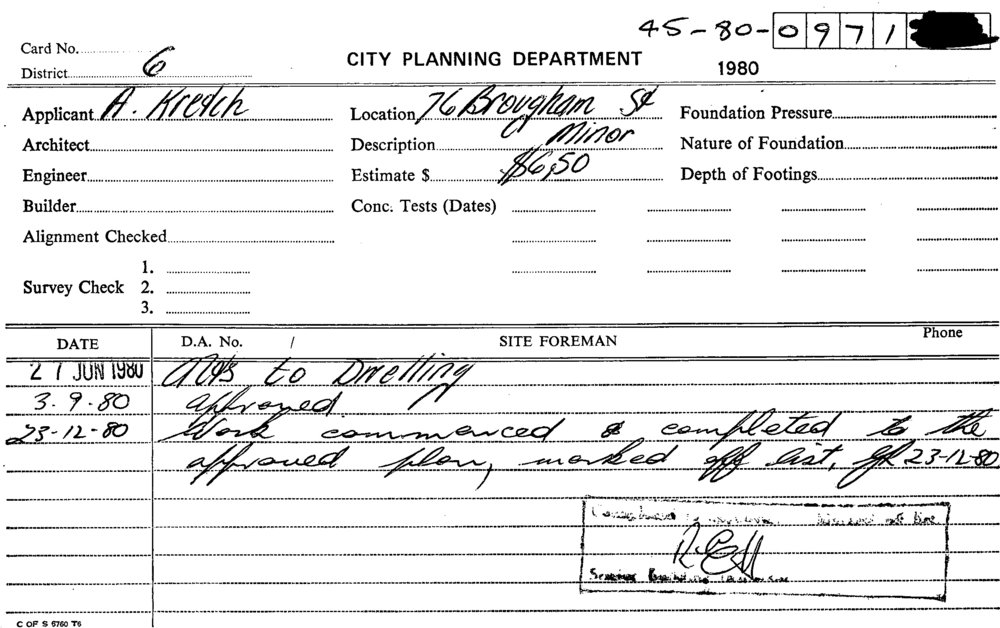 45-80-0971
Card No.
District 6
CITY PLANNING DEPARTMENT
1980
Applicant A. Kretch
Location 76 Brougham St
Foundation Pressure
Architect
Description Minor
Nature of Foundation
Engineer
Estimate $ $6,50
Depth of Footings
Builder
Conc. Tests (Dates)
Alignment Checked
1.
Survey Check 2.
3.
DATE D.A. No. / SITE FOREMAN Phone
27 JUN 1980 Alts to Dwelling
3.9.80 approved
23-12-80 Work commenced & completed to the
approved plan, marked off list, 23-12-80
Senior Building
C OF S 5760 T6